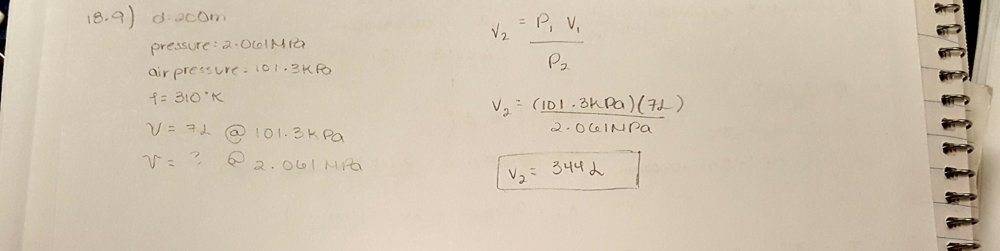 18.9) d=200m
pressure: 2.061MPa
air pressure = 101.3KPa
t= 310°K
V = 7L @ 101.3KPa
V = ? @ 2.061 MPa
V₂ = P₁ V₁
P₂
V₂ = (101.3KPa)(7L)
2.061MPa
V₂ = 344L